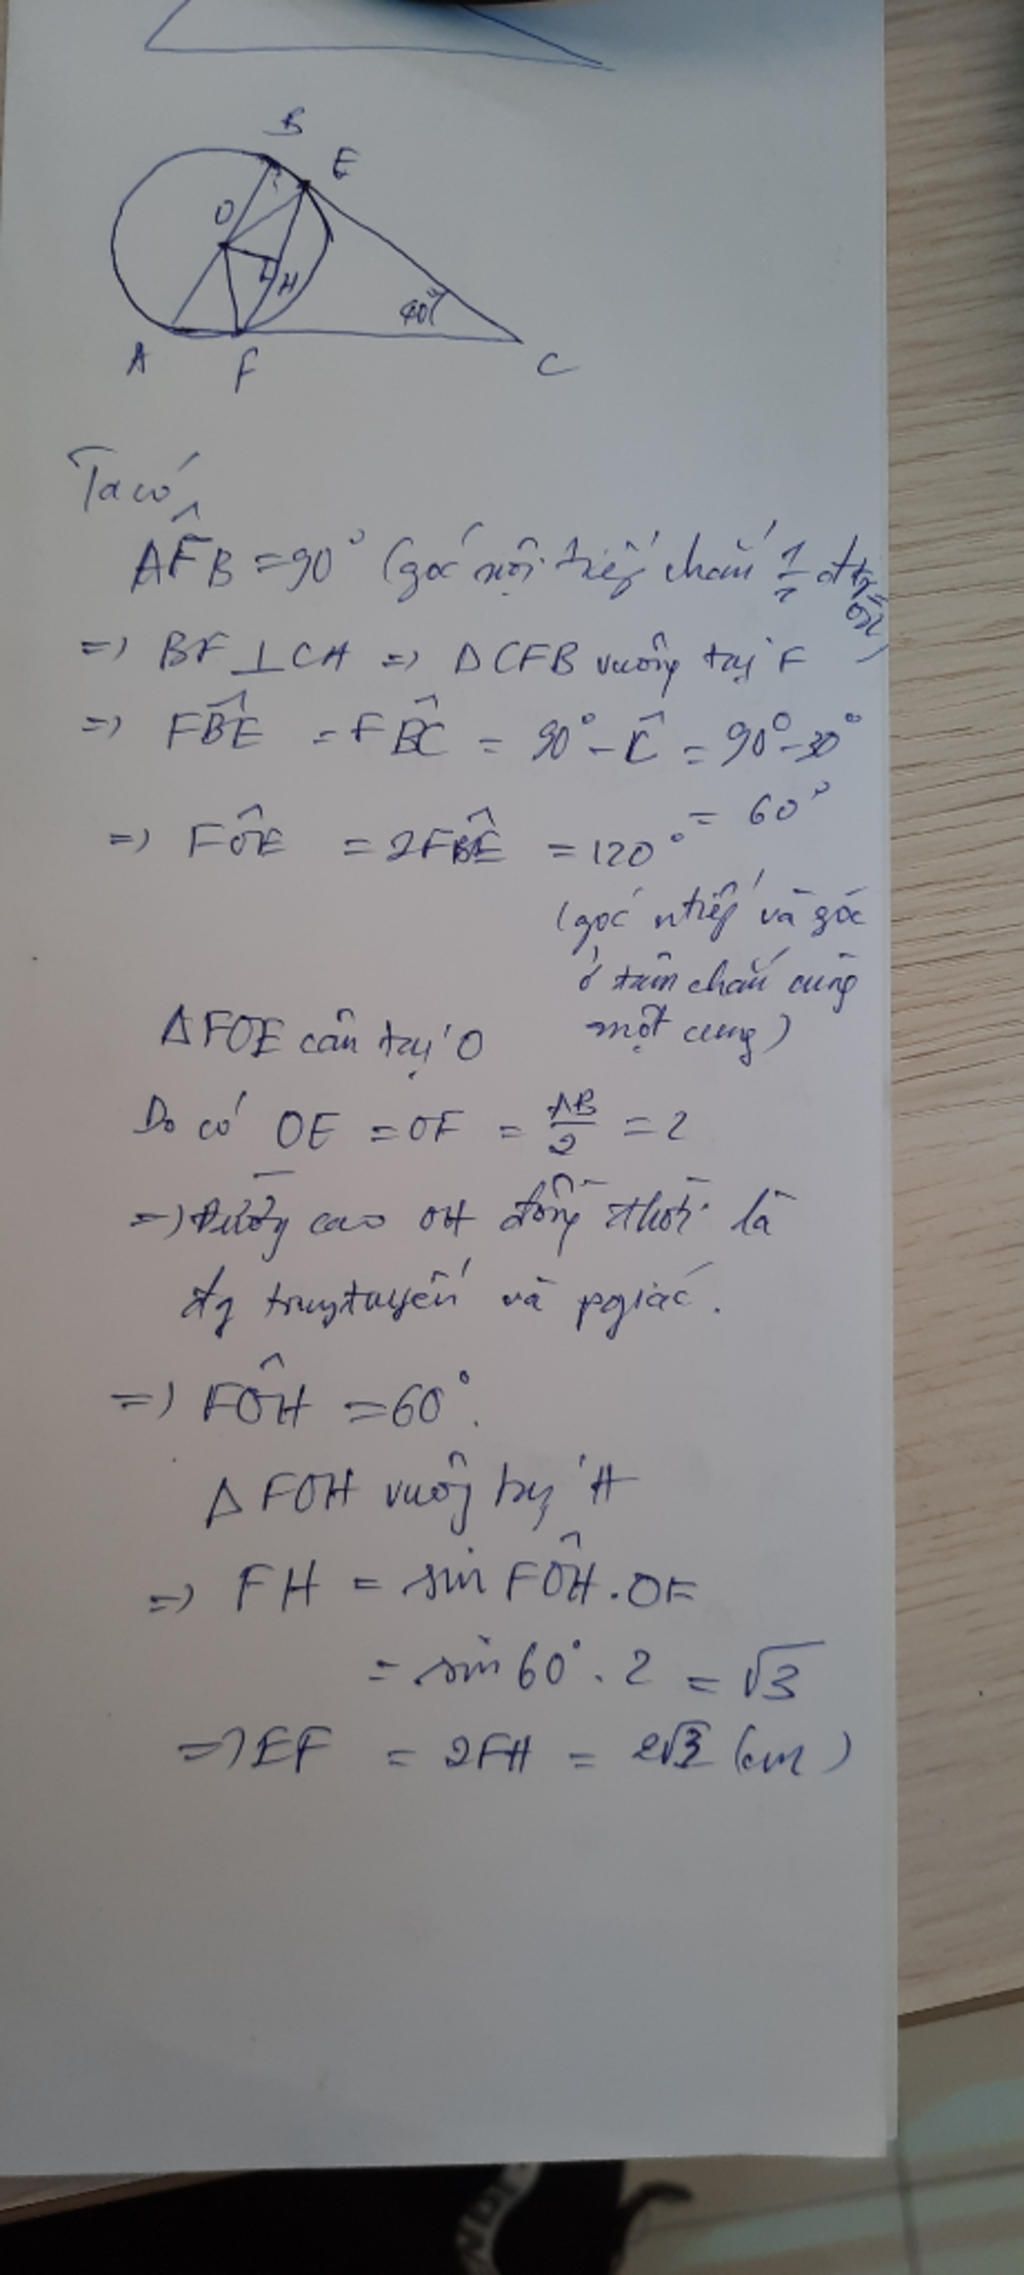 B
E
O
H
40°
A
F
C
Ta có
AF̂B = 90° (góc nội tiếp chắn 1/2 đtròn)
=> BF ⊥ CA => ΔCFB vuông tại F
=> FB̂E = FB̂C = 90° - Ĉ = 90° - 30°
= 60°
=> FÔE = 2FB̂E = 120°
(góc ntiếp và góc
ở tâm chắn cùng
một cung)
ΔFOE cân tại O
Do có OE = OF = AB/2 = 2
=> Đường cao OH đồng thời là
đg trung tuyến và pgiác.
=> FÔH = 60°.
Δ FOH vuông tại H
=> FH = sin FÔH . OF
= sin 60° . 2 = √3
=> EF = 2FH = 2√3 (cm)